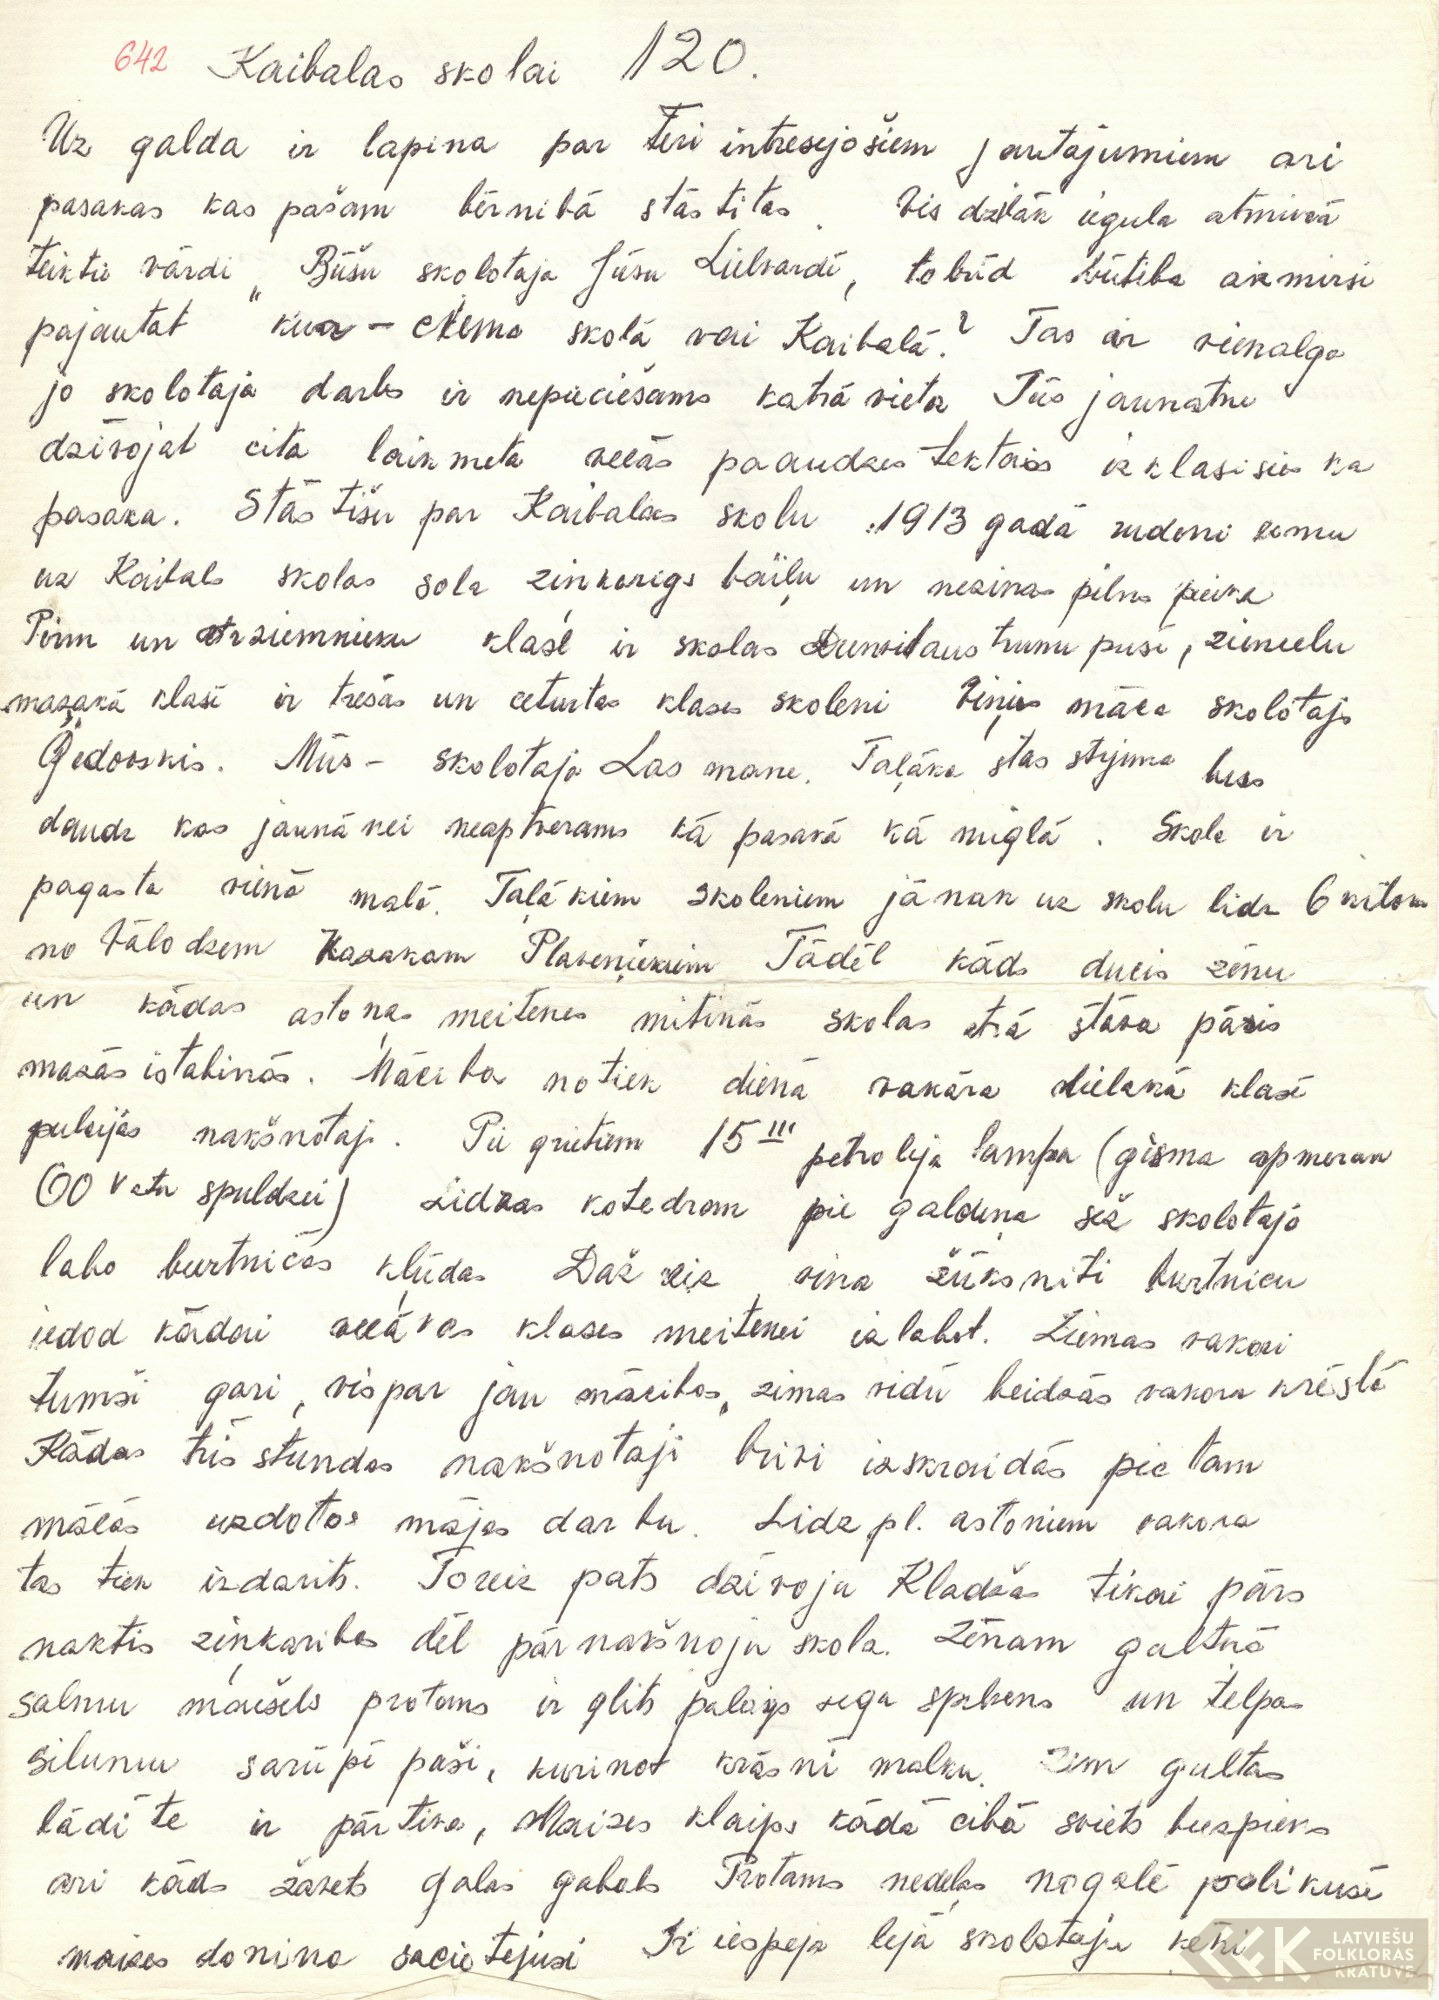 642 Kaibalas skolai 120.
Uz galda ir lapina par Teri intresejošiem jautajumiem ari
pasakas kas pašam bērnibā stāstitas. Vis dziļāk iegula atmiņā
teiktie vārdi „Būšu skolotaja Jūsu Lielvardē, tobrid būtiba aizmirsi
pajautat "kur - ciema skolā vai Kaibalā? Tas ir vienalga
jo skolotaja darbs ir nepieciešams katrā vieta Jūs jaunatne
dzivojat cita laikmeta vecās paaudzes teiktais izklasisies ka
pasaka. Stāstišu par Kaibalas skolu .1913 gadā rudeni eimu
uz Kaibals skolas sola zinkarigs baiļu un nezinas pilns pieka
Pirm un otrziemnieku klasē ir skolas Dienvidaustrumu pusē, ziemeelu
mazakā klasē ir trešas un ceturtas klases skoleni Viņus māca skolotajs
Ģedovskis. Mūs - skolotaja Lasmane. Taļāka stāstijuma bus
daudz kas jaunānei neaptverams kā pasakā kā miglā. Skola ir
pagasta vienā malā. Taļākiem skoleniem jānak uz skolu lidz 6 kilom
no Vālodzem Kazakam Plaveniekiem Tādēl kāds ducis zēnu
un kādas astoņas meitenes mitinās skolas otrā stāva pāris
mazās istabinās. Mācība notiek dienā vakāra lielakā klasē
pulcējas nakšnotaji. Pie grietiem 15''' petroleja lampa (gisma apmeram
60 vatu spuldzei) Lidzas kotedram pie galdeņa sēž skolotaja
labo burtnicās kļūdas Daž reiz vina sūksniti burtnicu
iedod kādai vecākas klases meitenei izlabot. Ziemas vakari
tumši gari, vispar jau mācibas, zimas vidū beidzās vakara krēslā
Kādas tris stundas nakšnotaji brivi izskraidās pie tam
mācās uzdotos mājas darbu. Lidz pl. astoniem vakara
tas tiek izdarits. Toreiz pats dzivoju Kladžās tikai pārs
naktis ziņkaribas dēl pārnakšnoju skola. Zēnam gultnā
salmu maišels protams ir glits palags sega spilvens un telpas
silumu sarūpē paši, kurinot krāsni malku. Zem gultas
lādite ir pārtika, Maizes klaips kādā cibā sviets biezpiens
ari kāds žavets galas gabals Protams nedēļas nogalē palikusē
maizes donina sacietejusi Ir iespeja lejā skolotaju ķēki
LATVIEŠU
FOLKLORAS
KRĀTUVE